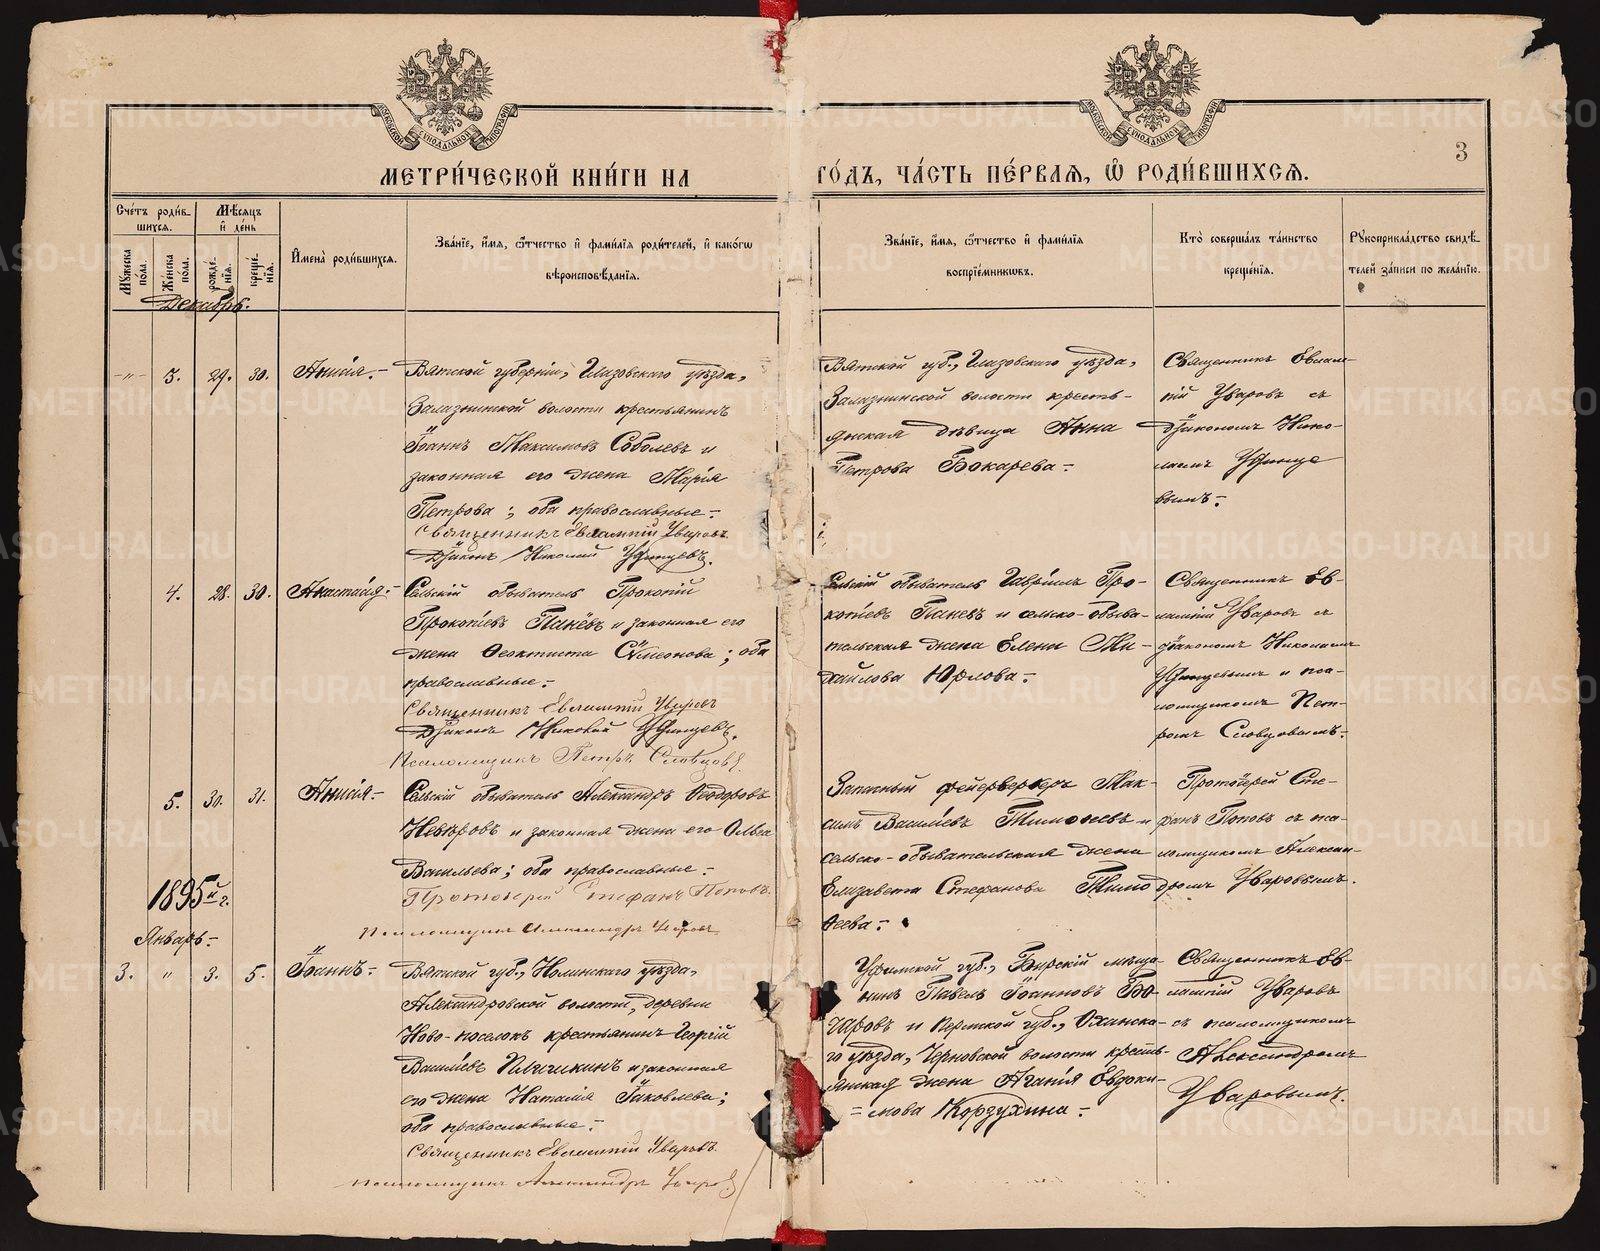 МЕТРИ́ЧЕСКОЙ КНИ́ГИ НА ГО́ДЪ, ЧА́СТЬ ПЕ́РВАѦ, Ѡ҆ РОДИ́ВШИХСѦ.
3
Сче́тъ роди́в-
шихсѧ.
Мѣ́сѧцъ
и҆ де́нь
Мꙋ́жеска по́ла.
Же́нска по́ла.
рожде́-
нїѧ.
креще́-
нїѧ.
И҆мена̀ роди́вшихсѧ.
Зва́нїе, и҆́мѧ, ѻ҆́тчество и҆ фами́лїѧ роди́телей, и҆ како́гѡ
вѣроисповѣ́данїѧ.
Зва́нїе, и҆́мѧ, ѻ҆́тчество и҆ фами́лїѧ
воспрїе́мникѡвъ.
Кто̀ соверша́лъ та́инство
креще́нїѧ.
Рꙋкоприкла́дство свидѣ́-
телей за́писи по жела́нїю.
Декабрь.
-"- 3. 29. 30. Анисія.-
Вятской губерніи, Глазовскаго уѣзда,
Залазнинской волости крестьянинъ
Іоаннъ Максимовъ Соболевъ и
законная его жена Марія
Петрова; оба православные.-
Священникъ Евлампій Уваровъ
Діаконъ Николай Удинцевъ.
Вятской губ., Глазовскаго уѣзда,
Залазнинской волости кресть-
янская дѣвица Анна
Петрова Бокарева.-
Священникъ Евлам-
пій Уваровъ съ
діакономъ Нико-
лаемъ Удинце
вымъ.-
4. 28. 30. Анастасія.-
Сельскій обыватель Прокопій
Прокопіевъ Панёвъ и законная его
жена Ѳеоктиста Сѵмеонова; оба
православные.-
Священникъ Евлампій Уваровъ
Діаконъ Николай Удинцевъ.
Псаломщикъ Петръ Словцовъ.
Сельскій обыватель Гавріилъ Про-
копіевъ Паневъ и сельско-обыва-
тельская жена Елена Ми-
хайлова Юрлова.-
Священникъ Ев-
лампій Уваровъ съ
діакономъ Николаемъ
Удинцевымъ и пса-
ломщикомъ Пет-
ромъ Словцовымъ.-
5. 30. 31. Анисія.-
Сельскій обыватель Александръ Ѳеодоровъ
Невѣровъ и законная жена его Ольга
Васильева; оба православные.-
Протоіерей Стефанъ Поповъ
Псаломщикъ Александръ Уваровъ
Запасный фейерверкеръ Мак-
симъ Васильевъ Тимоѳеевъ и
сельско-обывательская жена
Елизавета Стефанова Тимо
ѳеева.-
Протоіерей Сте-
фанъ Поповъ съ пса-
ломщикомъ Алексан-
дромъ Уваровымъ.
1895й г.
Январь.-
3. " 3. 5. Іоаннъ.-
Вятской губ., Нолинскаго уѣзда,
Александровской волости, деревни
Ново-поселокъ крестьянинъ Георгій
Васильевъ и законная
его жена Наталія Іаковлева;
оба православные.-
Священникъ Евлампій Уваровъ.
псаломщикъ Александръ Уваровъ
Уфимской губ., Бирскій мѣща-
нинъ Павелъ Іоанновъ Бо-
чаровъ и Пермской губ., Оханска-
го уѣзда, Черновской волости кресть-
янская жена Агапія Евдоки-
=мова Корзухина.-
Священникъ Ев-
лампій Уваровъ
съ псаломщикомъ
Александромъ
Уваровымъ.
METRIKI.GASO-URAL.RU